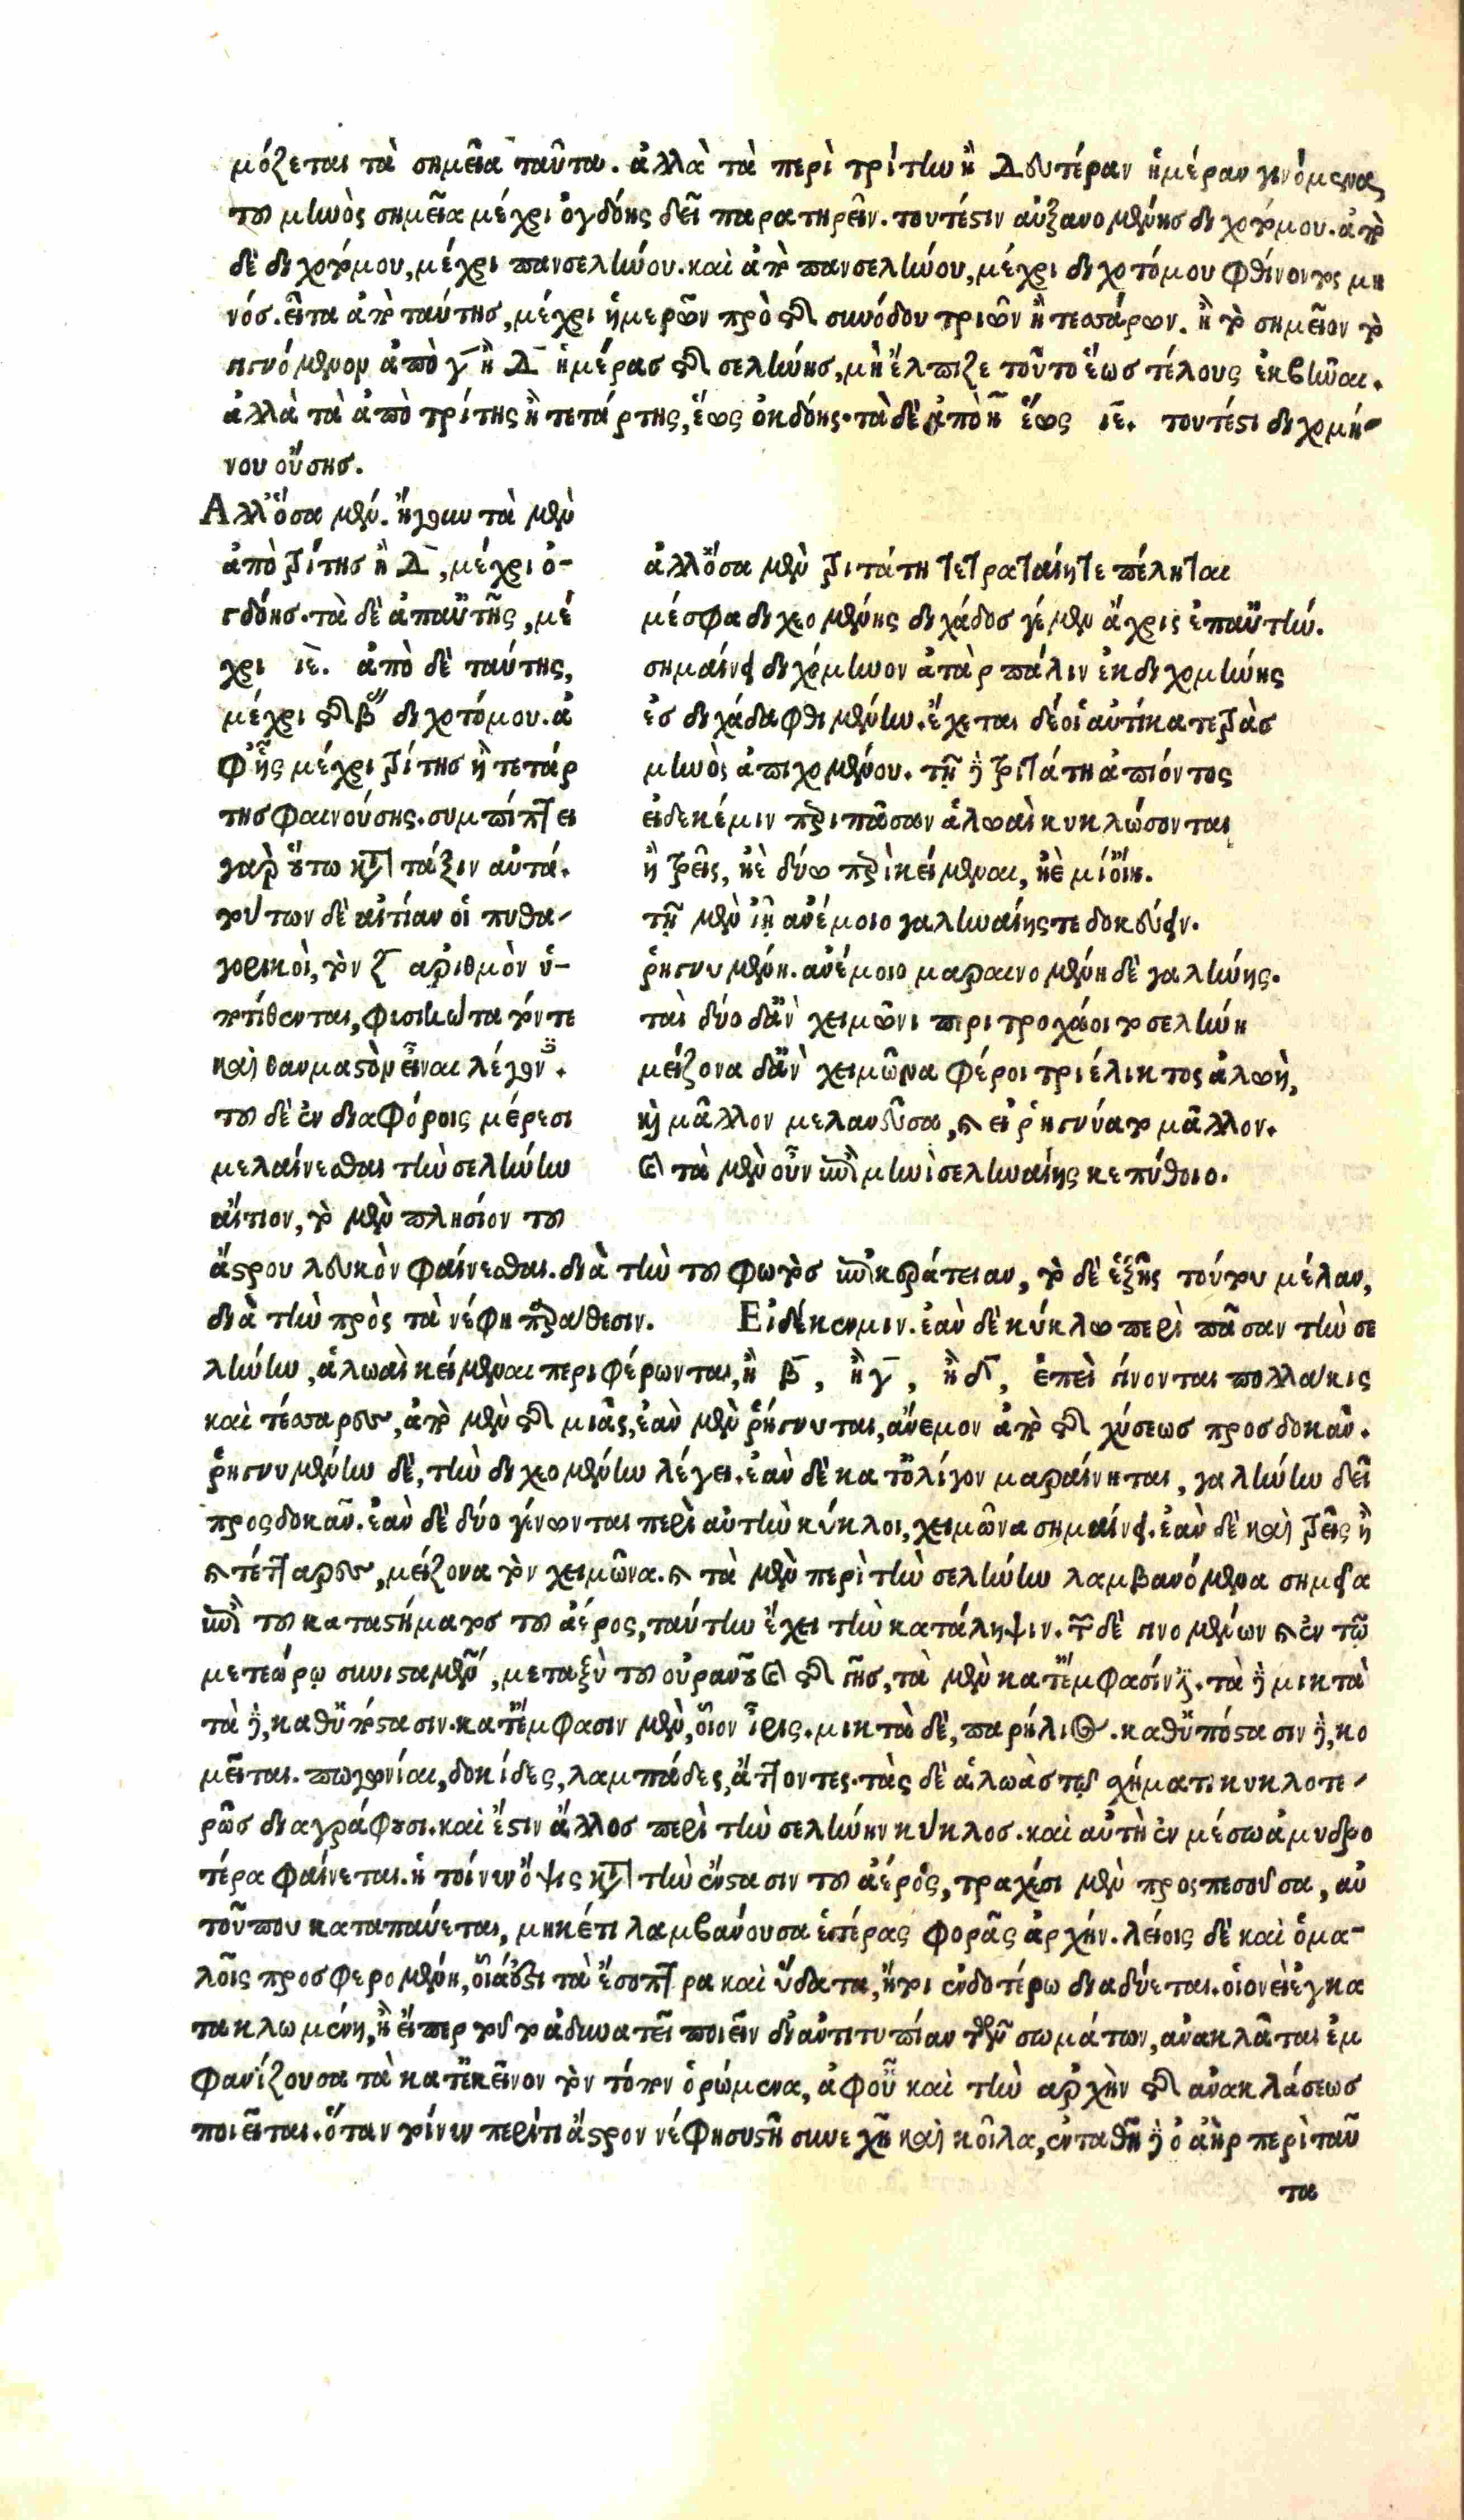 μόζεται τὰ σημεῖα ταῦτα. ἀλλὰ τὰ περὶ τρίτην ἢ Δευτέραν ἡμέραν γινόμενα
τοῦ μηνὸς σημεῖα μέχρι ὀγδόης δεῖ παρατηρεῖν. τουτέστιν αὐξανομένης διχοτόμου. ἀπὸ
δὲ διχοτόμου, μέχρι πανσελήνου. καὶ ἀπὸ πανσελήνου, μέχρι διχοτόμου φθίνοντος μη
νός. εἶτα ἀπὸ ταύτης, μέχρι ἡμερῶν πρὸ τῆς συνόδου τριῶν ἢ τεσσάρων. ἢ τὸ σημεῖον τὸ
γινόμενον ἀπὸ γ ἢ Δ ἡμέρας τῆς σελήνης, μὴ ἔλπιζε τοῦτο ἕως τέλους ἐκβῆναι.
ἀλλὰ τὰ ἀπὸ τρίτης ἢ τετάρτης, ἕως ὀκδόης. τὰ δὲ ἀπὸ η ἕως ιε. τουτέστι διχομή-
νου οὔσης.
Αλλ' ὅσα μέν. ἤγουν τὰ μὲν
ἀπὸ τρίτης ἢ Δ, μέχρι ὀ-
γδόης. τὰ δὲ ἀπ' αὐτῆς, μέ
χρι ιε. ἀπὸ δὲ ταύτης,
μέχρι τῆς β διχοτόμου. ἀ
φ' ἧς μέχρι τρίτης ἢ τετάρ
της φαινούσης. συμπίπτει
γὰρ οὕτω κατὰ τάξιν αὐτά.
τούτων δὲ αἰτίαν οἱ πυθα-
γορικοὶ, τὸν ζ ἀριθμὸν ὑ-
ποτίθενται, φυσικώτατόν τε
καὶ θαυμαστὸν εἶναι λέγοντες.
τοῦ δὲ ἐν διαφόροις μέρεσι
μελαίνεσθαι τὴν σελήνην
αἴτιον, τὸ μὲν πλησίον τοῦ
ἀλλ' ὅσα μὲν τριτάτη τετραταίη τε πέληται
μέσφα διχεομένης διχάδος γέ μεν ἄχρις ἐπ' αὐτήν.
σημαίνει διχόμηνον ἀτὰρ πάλιν ἐκ διχομήνης
ἐς διχάδα φθιμένην. ἔχεται δέ οἱ αὐτίκα τετρὰς
μηνὸς ἀποιχομένου. τῇ δὲ τριτάτη ἀπιόντος
εἰ δέ κέ μιν περὶ πᾶσαν ἀλωαὶ κυκλώσονται
ἢ τρεῖς, ἠὲ δύω περικείμεναι, ἠὲ μί' οἴη.
τῇ μὲν ἰῇ ἀνέμοιο γαληναίης τε δοκεύειν.
ῥηγνυμένη. ἀνέμοιο μαραινομένη δὲ γαλήνης.
ταὶ δύο δ' ἂν χειμῶνι περιτροχάοιντο σελήνη
μείζονα δ' ἂν χειμῶνα φέροι τριέλικτος ἀλωὴ,
καὶ μᾶλλον μελανεῦσα, καὶ εἰ ῥηγνύατο μᾶλλον.
καὶ τὰ μὲν οὖν ἐπὶ μηνὶ σεληναίης κε πύθοιο.
ἄστρου λευκὸν φαίνεσθαι. διὰ τὴν τοῦ φωτὸς ἐπικράτειαν, τὸ δὲ ἑξῆς τούτου μέλαν,
διὰ τὴν πρὸς τὰ νέφη παράθεσιν. Εἰ δέ κεν μιν. ἐὰν δὲ κύκλῳ περὶ πᾶσαν τὴν σε
λήνην, ἀλωαὶ κείμεναι περιφέρωνται, ἢ β, ἢ γ, ἢ δ, ἐπεὶ γίνονται πολλάκις
καὶ τέσσαρες, ἀπὸ μὲν τῆς μιᾶς, ἐὰν μὲν ῥήγνυται, ἄνεμον ἀπὸ τῆς χύσεως προσδοκᾶν.
ῥηγνυμένην δὲ, τὴν διχεομένην λέγει. ἐὰν δὲ κατ' ὀλίγον μαραίνηται, γαλήνην δεῖ
προσδοκᾶν. ἐὰν δὲ δύο γένωνται περὶ αὐτὴν κύκλοι, χειμῶνα σημαίνει. ἐὰν δὲ καὶ τρεῖς ἢ
καὶ τέτταρες, μείζονα τὸν χειμῶνα. καὶ τὰ μὲν περὶ τὴν σελήνην λαμβανόμενα σημεῖα
ἐπὶ τοῦ καταστήματος τοῦ ἀέρος, ταύτην ἔχει τὴν κατάληψιν. τῶν δὲ γινομένων καὶ ἐν τῷ
μετεώρῳ συνισταμένων, μεταξὺ τοῦ οὐρανοῦ καὶ τῆς γῆς, τὰ μὲν κατ' ἔμφασίν ἐστι. τὰ δὲ μικτὰ
τὰ δὲ, καθ' ὑπόστασιν. κατ' ἔμφασιν μὲν, οἷον ἶρις. μικτὰ δὲ, παρήλιος. καθ' ὑπόστασιν δὲ, κο
μῆται. πωγωνίαι, δοκίδες, λαμπάδες, ἄττοντες. τὰς δὲ ἀλωὰς τῷ σχήματι κυκλοτε-
ρῶς διαγράφουσι. καὶ ἔστιν ἄλλος περὶ τὴν σελήνην κύκλος. καὶ αὐτὴ ἐν μέσῳ ἀμυδρο
τέρα φαίνεται. ἡ τοίνυν ὄψις κατὰ τὴν ἔνστασιν τοῦ ἀέρος, τραχέσι μὲν προσπεσοῦσα, αὐ
τοῦ που καταπαύεται, μηκέτι λαμβάνουσα ἑτέρας φορᾶς ἀρχήν. λείοις δὲ καὶ ὁμα-
λοῖς προσφερομένη, οἷά ἐστι τὰ ἔσοπτρα καὶ ὕδατα, ἤτοι ἐνδοτέρω διαδύεται. οἱονεὶ ἐγκα
τακλωμένη, ἢ εἴπερ τοῦτο ἀδυνατεῖ ποιεῖν δι' ἀντιτυπίαν τῶν σωμάτων, ἀνακλᾶται ἐμ
φανίζουσα τὰ κατ' ἐκεῖνον τὸν τόπον ὁρώμενα, ἀφ' οὗ καὶ τὴν ἀρχὴν τῆς ἀνακλάσεως
ποιεῖται. ὅταν τοίνυν περί τι ἄστρον νέφη συστῇ συνεχῆ καὶ κοῖλα, ἐνταθῇ δὲ ὁ ἀὴρ περὶ ταῦ
τα